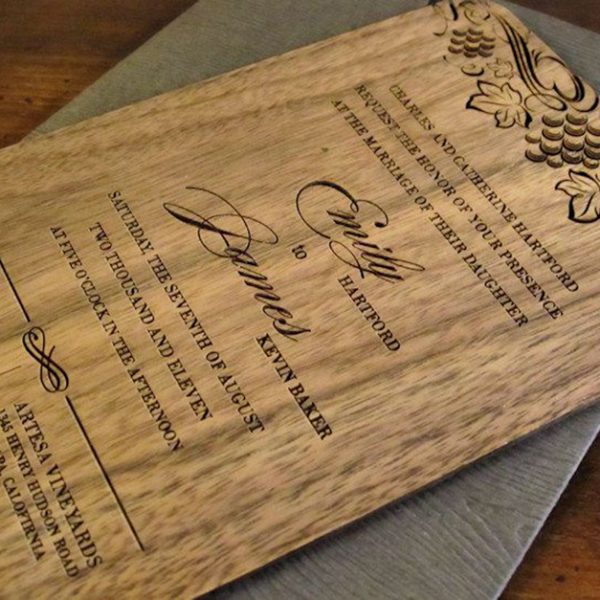 CHARLES AND CATHERINE HARTFORD
REQUEST THE HONOR OF YOUR PRESENCE
AT THE MARRIAGE OF THEIR DAUGHTER
Emily
HARTFORD
to
James
KEVIN BAKER
SATURDAY THE SEVENTH OF AUGUST
TWO THOUSAND AND ELEVEN
AT FIVE O'CLOCK IN THE AFTERNOON
ARTESA VINEYARDS
1345 HENRY HUDSON ROAD
CALOFIRNIA